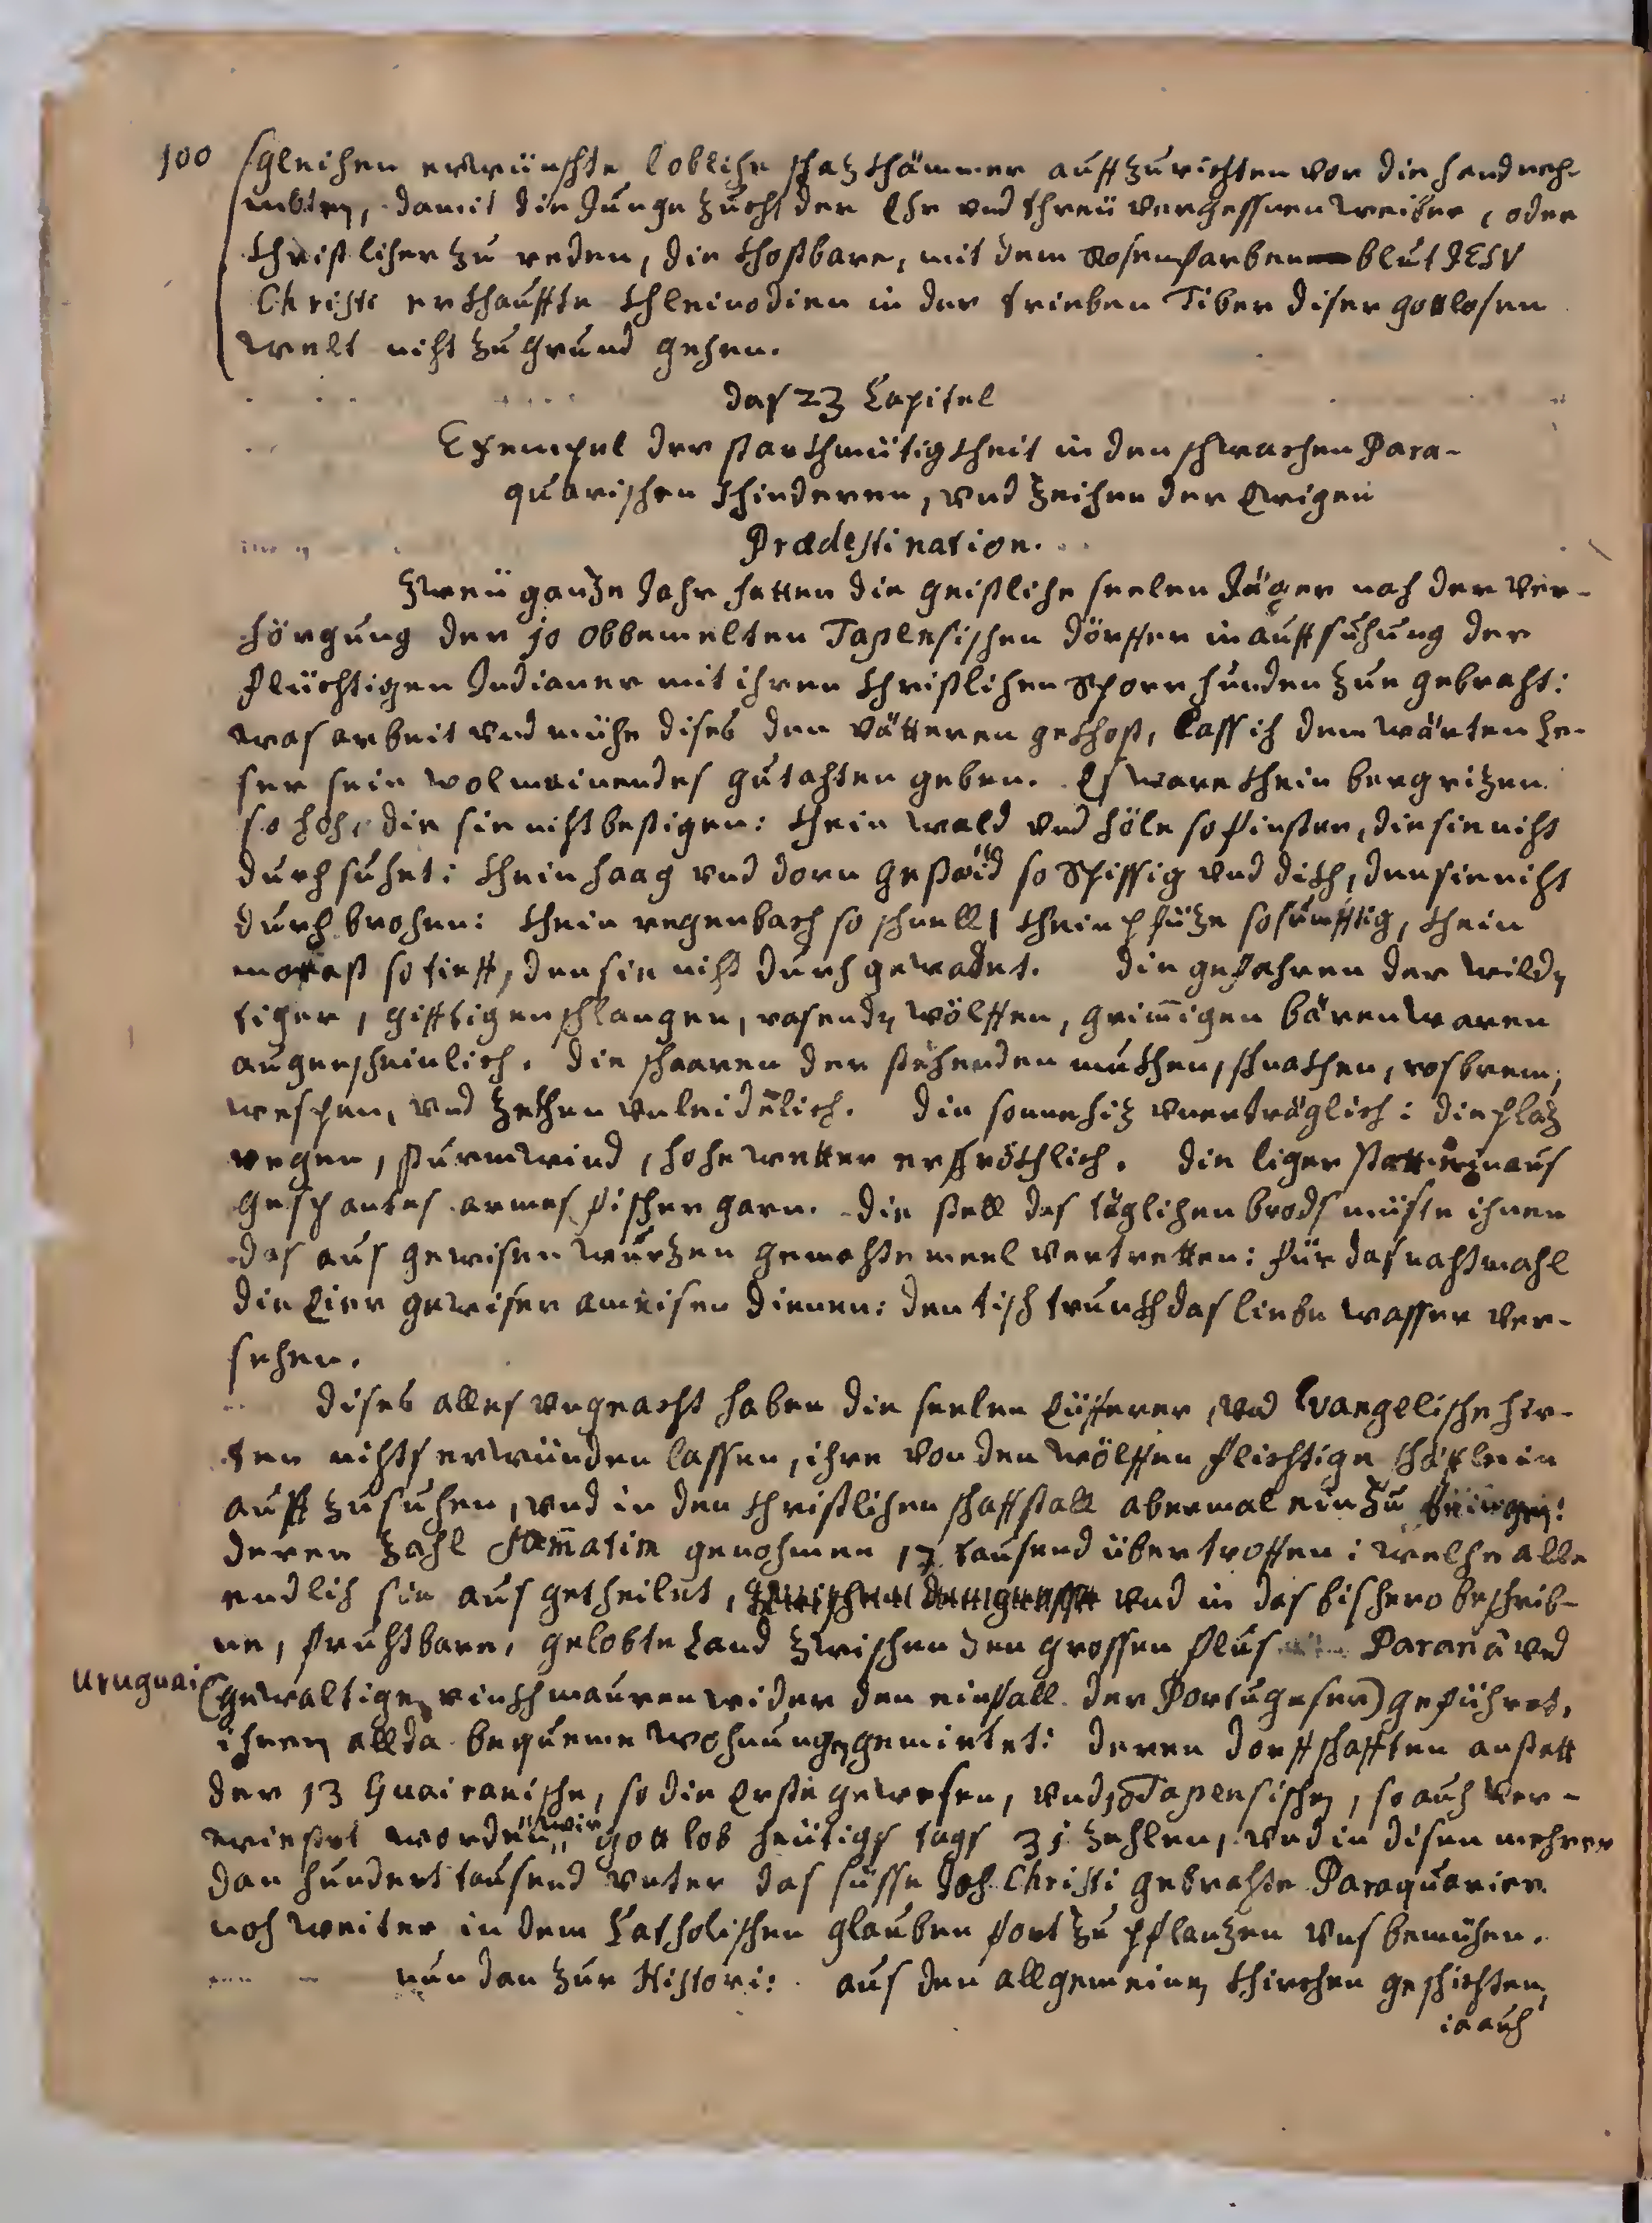 100
sgleichen erwünschte lobliche schaz khämmer auffzurichten vor die hand neh-
mbten, damit die Junge zucht der Ehr und threü vergessnen weiber, oder
Christlicher zu reden, die khostbare, mit dem Rosenfarben blut JESV
Christi erkhauffte khleinodien in der trieben Tiber diser gottlosen
welt nicht zu grund gehen.
das 23 Capitel
Exempel der starkhmütigkheit in den schwachen Para-
quarischen khinderen, vnd zeichen der Ewigen
Prædestination.
Zweü ganze Jahr hatten die geistliche seelen Jäger nach der ver-
hörgung der 10 obbemelten Tapensischen dörffer in auffsuchung der
flüchtigen Indianer mit ihren Christlichen Spoer hunden zue gebracht:
was arbeit vnd mühe dises den vätteren gekhost, lass ich dem wärten Le-
ser sein wolmeinendes gutachten geben. Es ware khein berg rizen
so hoch, die sie nicht bestigen: khein wald vnd höle so finster, die sie nicht
durchsuchet: khein haag vnd dorn gestaüd so Spissig vnd dikh, den sie nicht
durch brochen: khein regenbach so schnell, khein pfüze so sumpftig, khein
morast so tieff, den sie nicht durch gewadet. die gefahren der wildn
tiger, gifftigen schlangen, rasendn wölffen, grim̅igen bären waren
augenscheinlich. die schaaren der stehenden mukhen, schnakhen, rosbrem,
wespen, vnd zekhen vnleidelich. die sonnehiz vnerträglich: die plaz
regen, sturmwind, hohe wetter erschrökhlich. die liger statt ein aus
gespantes armes fischer garn. die stell des täglichen brods muste ihnen
das aus gewisen wurzen gemachte meel vertretten: für das nachtmahl
die Eier gewiser ameisen dienen: den tisch trunkh das liebe wasser ver-
sehen.
dises alles vngeacht haben die seelen Eüfferer, vnd Evangelische hir-
ten nichts erwünden lassen, ihre von den wölffen flichtige schäfflein
auff zu suchen, vnd in den Christlichen schaffstall abermal ein zu bringen:
deren zahl sam̅atim genohmen 17 tausend übertroffen: welche alle
endlich sie aus getheilet, vnd in das bishero beschrib-
ne, fruchtbare, gelobte Land zwischen den grossen flus Paranâ vnd
Uruguai (gewaltige rinkhmauren wider den einfall der Portugeser) geführet,
ihnen allda bequeme wohnungn gemietet: deren dorffschafften anstatt
der 13 Guairanische, so die Erste gewesen, vnd 10 Tapensischen, so auch ver-
wiestet worden, wir gott lob heütigs tags 31 zehlen, vnd in disen mehrer
dan hundert tausend vnter das süsse Joch Christi gebrachte Paraquarier
noch weiter in dem Catholischen glauben fort zu pflanzen vns bemühen.
nun dan zur Histori: aus den allgemeinen khirchen geschichten,
ia auch